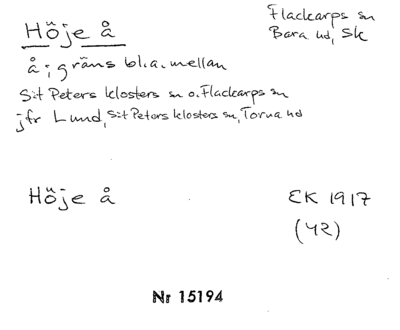 Höje å
Flackarps sn
Bara hd, Sk
å; gräns bl.a. mellan
S:t Peters klosters sn o. Flackarps sn
jfr Lund, S:t Peters klosters sn, Torna hd
Höje å
EK 1917
(42)
Nr 15194